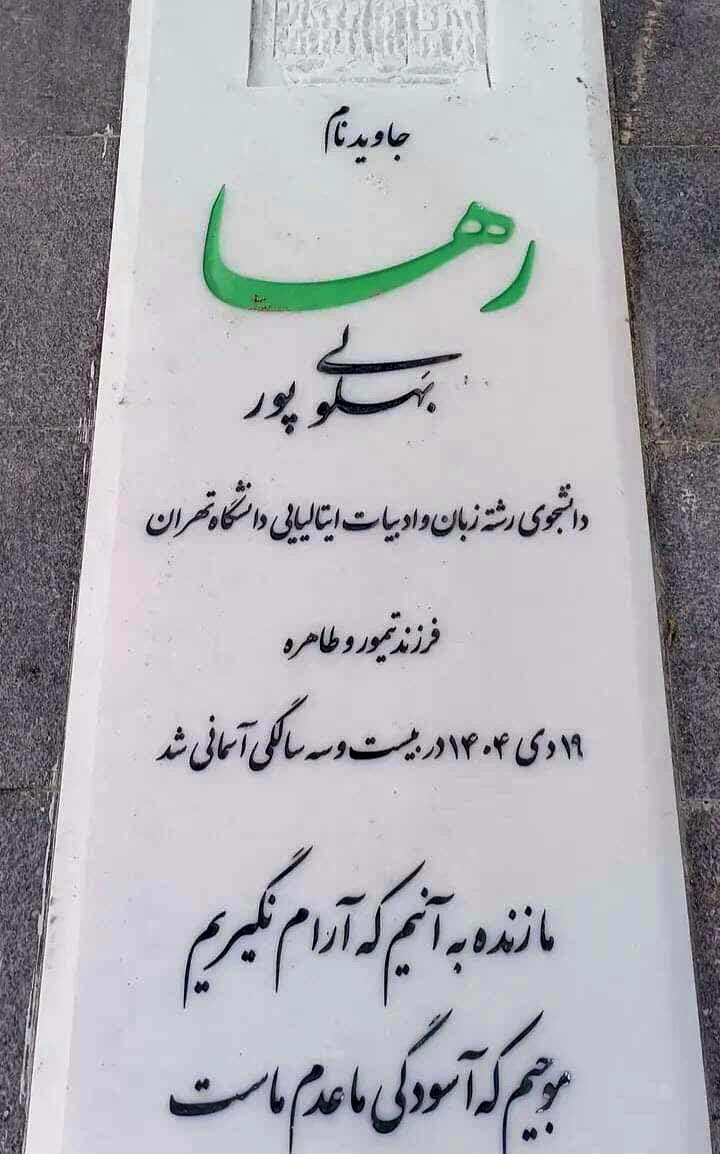 جاوید نام
رها
بهلولی پور
دانشجوی رشته زبان و ادبیات ایتالیایی دانشگاه تهران
فرزند تیمور و طاهره
۱۹ دی ۱۴۰۴ در بیست و سه سالگی آسمانی شد
ما زنده به آنیم که آرام نگیریم
موجیم که آسودگی ما عدم ماست